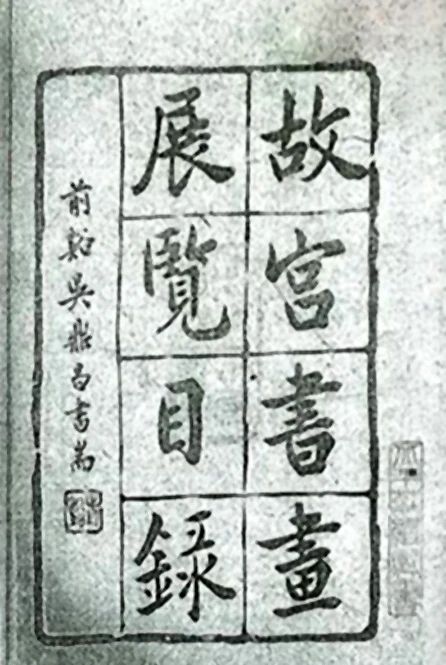 故宮書畫
展覽目錄
前谿吳鼎昌書耑